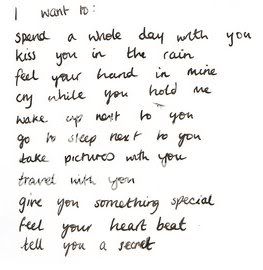 I want to:
spend a whole day with you
kiss you in the rain
feel your hand in mine
cry while you hold me
wake up next to you
go to sleep next to you
take pictures with you
travel with you
give you something special
feel your heart beat
tell you a secret